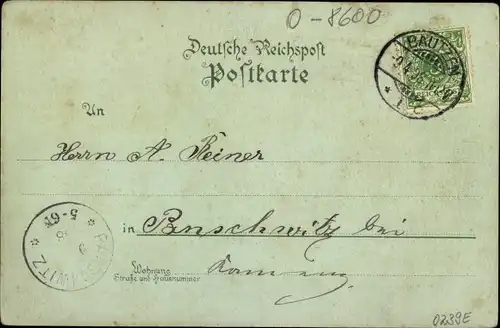 O-8600
Deutsche Reichspost
Postkarte
BAUTZEN
REICHS
An
Herrn A. Reiner
in Panschwitz bei
5-6N
Wohnung
Straße und Hausnummer
Kamenz
0239E